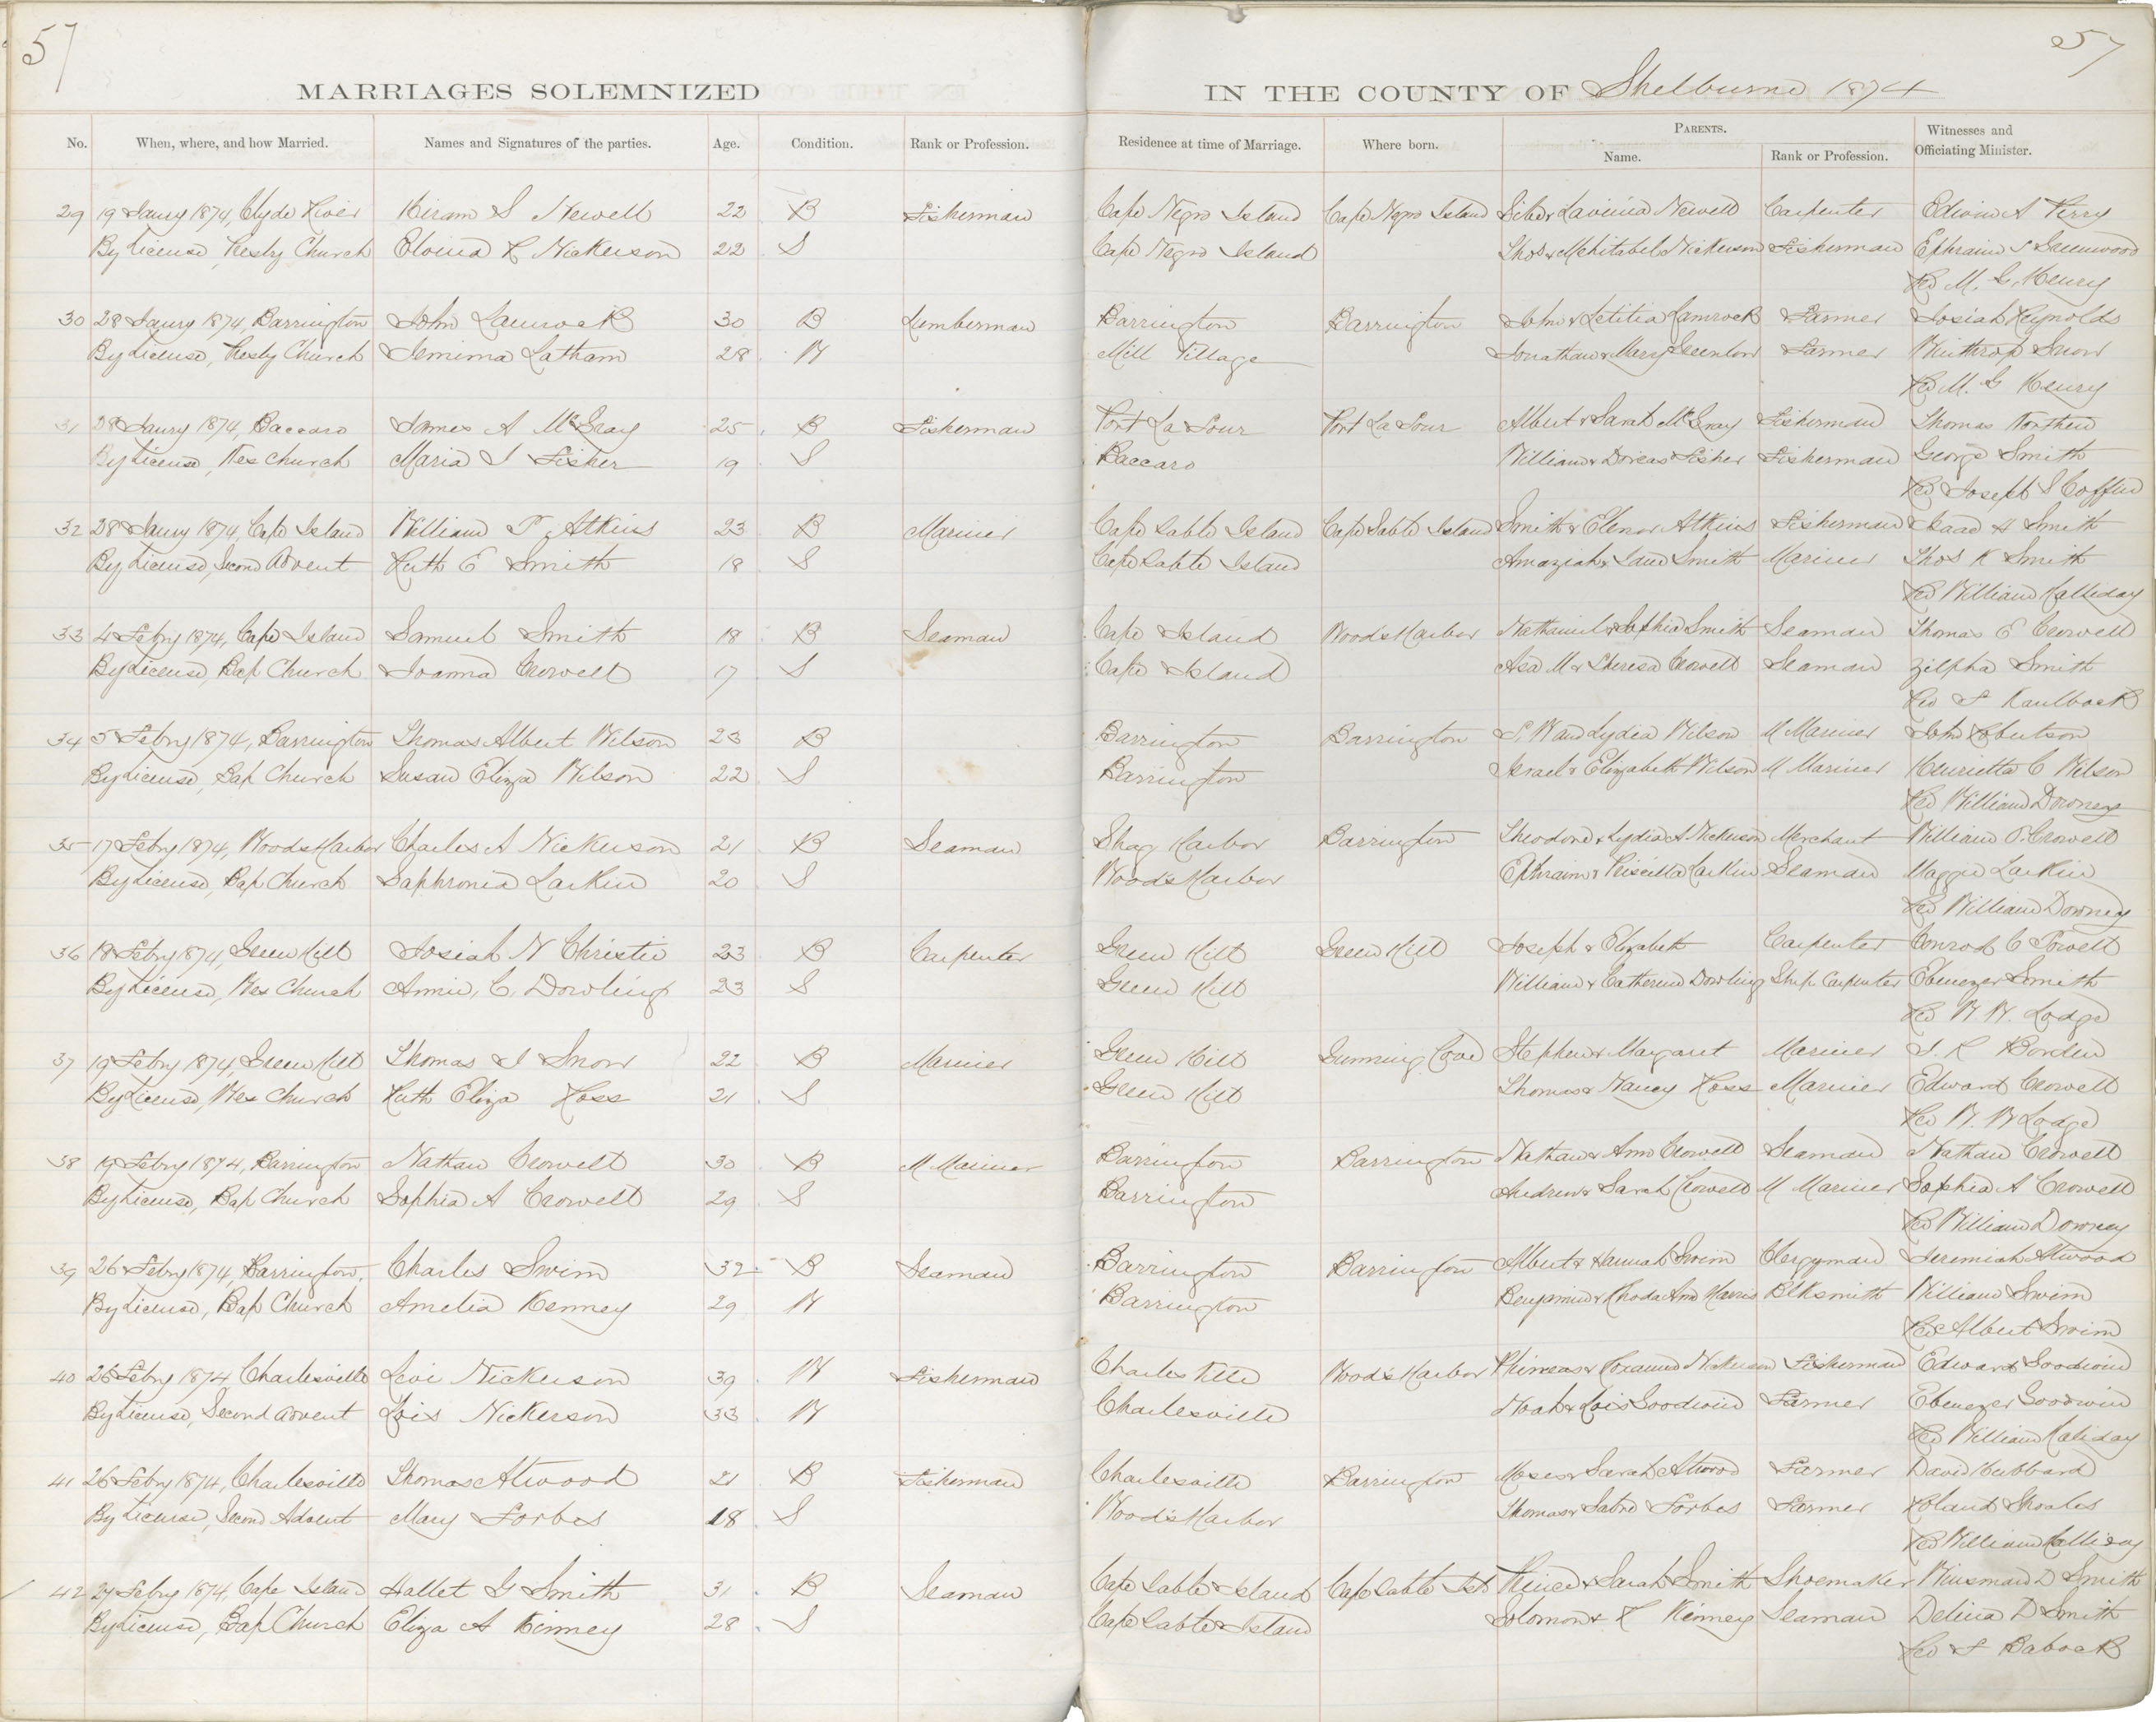 57
57
MARRIAGES SOLEMNIZED IN THE COUNTY OF Shelburne 1874
No. When, where, and how Married. Names and Signatures of the parties. Age. Condition. Rank or Profession. Residence at time of Marriage. Where born. PARENTS. Name. Rank or Profession. Witnesses and Officiating Minister.
29 19 Jany 1874, Clyde River Hiram S Newell 22 B Fisherman Cape Negro Island Cape Negro Island & Lavinia Newell Carpenter Edwin A Perry
By License, Presby Church Elvina R Nickerson 22 S Cape Negro Island Thos & Mehitabel Nickerson Fisherman Ephraim S Greenwood
Rev M. G. Henry
30 28 Jany 1874, Barrington John Lamrock 30 B Lumberman Barrington Barrington John & Letitia Lamrock Farmer Josiah Reynolds
By License, Presby Church Jemima Latham 28 W Mill Village Jonathan & Mary Greenlow Farmer Winthrop Snow
Rev M. G Henry
31 28 Jany 1874, Baccaro James A McGray 25 B Fisherman Port La Tour Port La Tour Albert & Sarah McGray Fisherman Thomas
By License, Wes Church Maria I Fisher 19 S Baccaro William & Dorcas Fisher Fisherman George Smith
Rev Joseph S Coffin
32 28 Jany 1874, Cape Island William T. Atkins 23 B Mariner Cape Sable Island Cape Sable Island Smith & Elenor Atkins Fisherman Isaac H Smith
By License, Second Advent Ruth E Smith 18 S Cape Sable Island Amaziah & Jane Smith Mariner Thos K Smith
Rev William Halliday
33 4 Febry 1874, Cape Island Samuel Smith 18 B Seaman Cape Island Woods Harbor Nathaniel & Sophia Smith Seaman Thomas E Crowell
By License, Bap Church Joanna Crowell 17 S Cape Island Asa M & Theresa Crowell Seaman Zilpha Smith
Rev F Kaulback
34 5 Febry 1874, Barrington Thomas Albert Wilson 23 B Barrington Barrington S. W and Lydia Wilson M Mariner John Robertson
By License, Bap Church Susan Eliza Wilson 22 S Barrington Israel & Elizabeth Wilson M Mariner Henrietta C Wilson
Rev William Downey
35 17 Febry 1874, Woods Harbor Charles A Nickerson 21 B Seaman Shag Harbor Barrington Theodore & Lydia A Nickerson Merchant William P. Crowell
By License, Bap Church Saphronia Larkin 20 S Wood's Harbor Ephraim & Priscilla Larkin Seaman Maggie Larkin
Rev William Downey
36 18 Febry 1874, Green Hill Josiah N Christie 23 B Carpenter Green Hill Green Hill Joseph & Elizabeth Carpenter Conrod C Powell
By License, Wes Church Annie, C, Dowling 23 S Green Hill William & Catherine Dowling Ship Carpenter Ebenezer Smith
Rev W. W. Lodge
37 19 Febry 1874, Green Hill Thomas I Snow 22 B Mariner Green Hill Gunning Cove Stephen & Margaret Mariner J. R Borden
By License, Wes Church Ruth Eliza Ross 21 S Green Hill Thomas & Nancy Ross Mariner Edward Crowell
Rev W. W Lodge
38 19 Febry 1874, Barrington Nathan Crowell 30 B M Mariner Barrington Barrington Nathan & Ann Crowell Seaman Nathan Crowell
By License, Bap Church Sophia A Crowell 29 S Barrington Andrew & Sarah Crowell M Mariner Sophia A Crowell
Rev William Downey
39 26 Febry 1874, Barrington, Charles Swim 32 B Seaman Barrington Barrington Albert & Hannah Swim Clergyman Jeremiah Atwood
By License, Bap Church Amelia Kenney 29 W Barrington Benjamin & Rhoda Ann Harris Blksmith William Swim
Rev Albert Swim
40 26 Febry 1874 Charlesville Levi Nickerson 39 W Fisherman Charles Ville Wood's Harbor Phineas & Roxanna Nickerson Fisherman Edward Goodwin
By License, Second Advent Lois Nickerson 33 W Charlesville Noah & Lois Goodwin Farmer Ebenezer Goodwin
Rev William Haliday
41 26 Febry 1874, Charlesville Thomas Atwood 21 B Fisherman Charlesville Barrington Moses & Sarah Atwood Farmer David Hubbard
By License, Second Advent Mary Forbes 18 S Wood's Harbor Thomas & Forbes Farmer Roland
Rev William Halliday
42 27 Febry 1874, Cape Island Hallet G Smith 31 B Seaman Cape Sable Island Cape Sable Isld & Sarah Smith Shoemaker Winsman D Smith
By License, Bap Church Eliza A Kinney 28 S Cape Sable Island Solomon & R Kinney Seaman Delina D Smith
Rev F Babcock